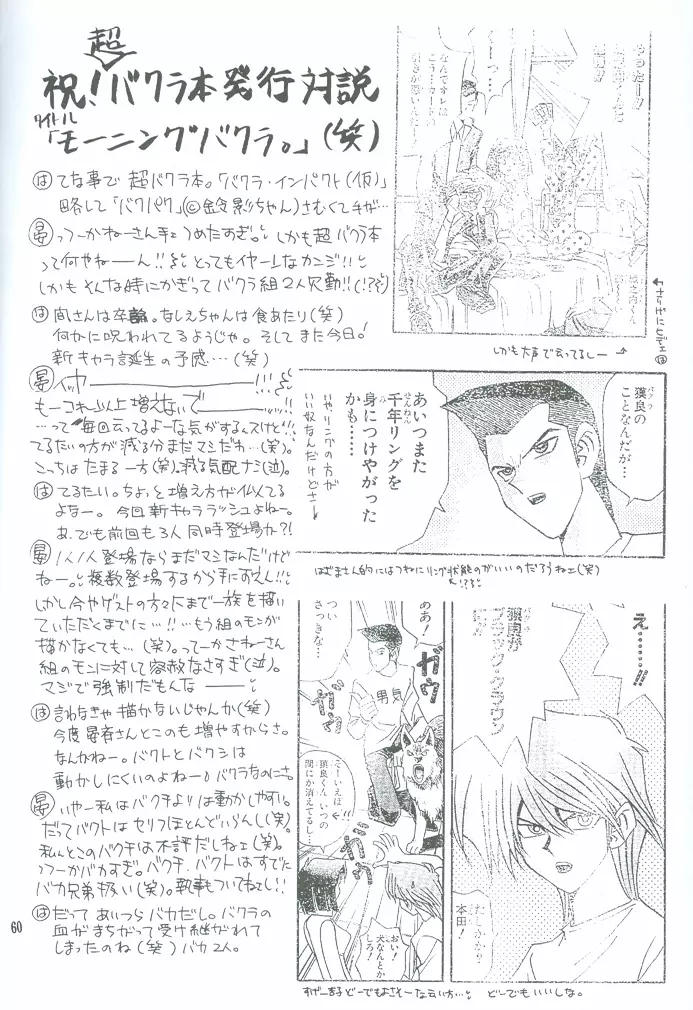 超
祝!バクラ本発行対説
タイトル
「モーニングバクラ。」(笑)
は てな事で超バクラ本。「バクラ・インパクト(仮)」
略して「バクパク」
さむくてチガ…
っつーかねーさん手ェつめたすぎ。しかも超バクラ本
って何やねーん!!とってもイヤーンなカンジ!!
しかもそんな時にかぎってバクラ組2人欠勤!!(!??)
は 尚さんは卒論。なしえちゃんは食あたり(笑)
何かに呪われてるようじゃ。そしてまた今日!
新キャラ誕生の予感…(笑)
イッヤー!!!
もーコレ以上増えないでー!!
…って毎回云ってるよーな気がするんですけど!!
てるたいの方が減る分まだマシだわ…(笑)。
こっちはたまる一方(笑)。減る気配ナシ(泣)。
は てるたい。ちょっと増え方が似てる
よなー。今回新キャララッシュよねー。
あ、でも前回も3人同時登場か?!
1人1人登場ならまだマシなんだけど
ねー。複数登場するから手にオえん!!
しかし今やゲストの方々にまで一族を描い
ていただくまでに…!!…もう組のモンが
描かなくても…(笑)。ってーかさねーさん
組のモンに対して容赦なさすぎ(泣)。
マジで強制だもんなー
は 言わなきゃ描かないじゃんか(笑)
今度晏斉さんとこのも増やすからさ。
なんかねー。バクトとバクシは
動かしにくいのよねー。バクラなのにさ。
いやー私はバクチよりは動かしやすい。
だってバクトはセリフほとんどいらんし(笑)。
私んとこのバクチは不評だしねェ(笑)。
っつーかバカすぎ。バクチ、バクトはすでに
バカ兄弟扱い(笑)。執事もついてるし!!
は だって あいつらバカだし。バクラの
血がまちがって受け継がれて
しまったのね(笑)バカ2人。
60
やったー!!
なんでオレは
こう…カード
引きが悪いんだ
くーっ…
城之内くん
しかも大声で云ってるしー
獏良の
バクラ
ことなんだが…
あいつまた
千年リングを
せんねん
身につけやがった
み
かも……
いやリングの方が
いい奴なんだけどさー
はざまさん的にはつねにリング状態のがいいのだろうねェ(笑)
ああ!
つい
さっきな…
ガウ
ガウ
男気
そーいえば
獏良くんいつの
間にか消えてるし…
!!
おい!
犬なんとか
しろ!
え……!!
獏良が
ブラック・クラウン
に…
たしかか?
本田!
すげーまるどーでもよさそーな云い方…
どーでもいいしな。